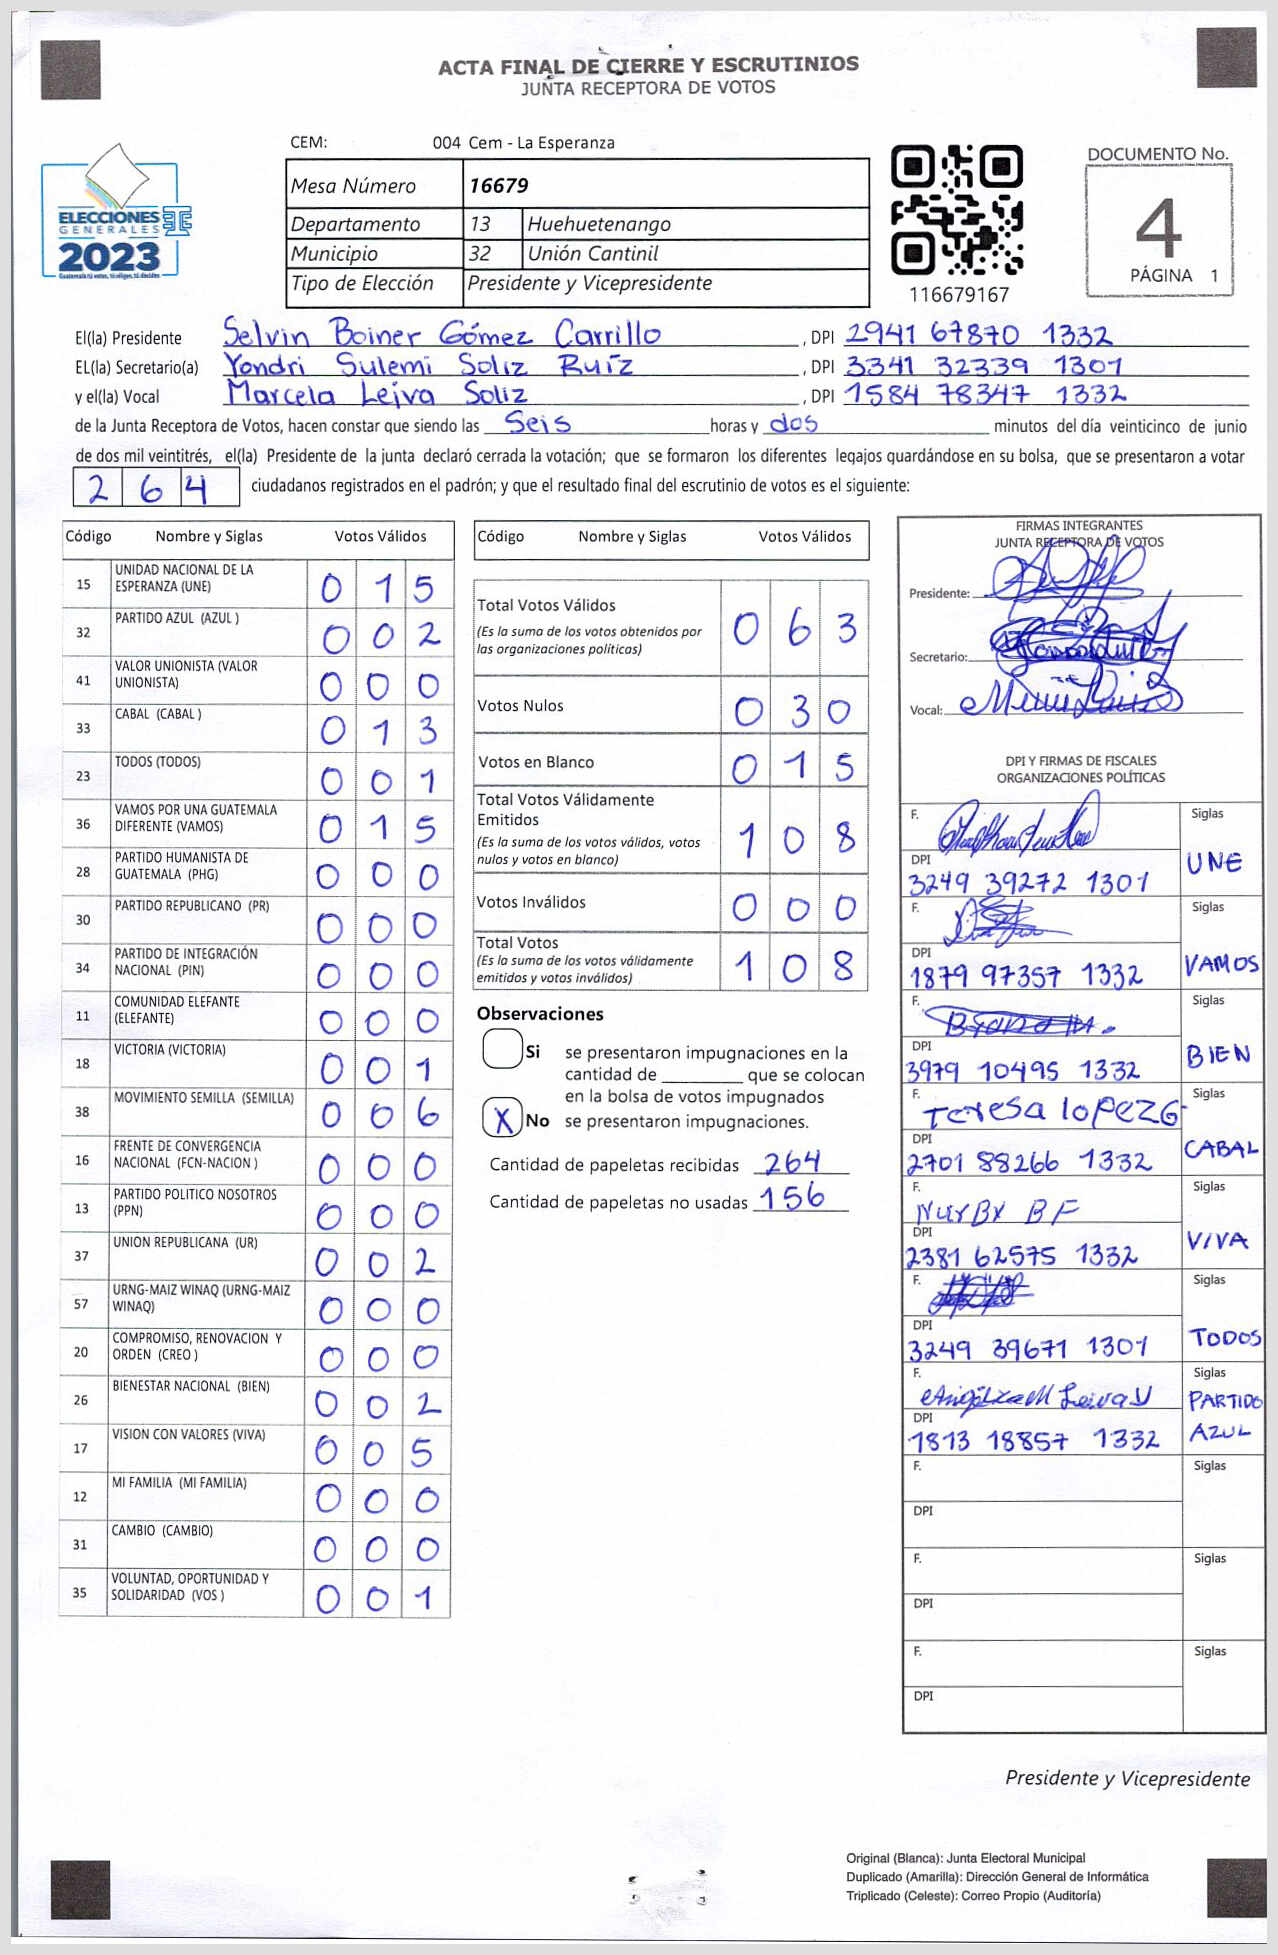 ACTA FINAL DE CIERRE Y ESCRUTINIOS
JUNTA RECEPTORA DE VOTOS
CEM: 004 Cem - La Esperanza
ELECCIONES
GENERALES
2023
Guatemala tú votas, tú eliges, tú decides
Mesa Número 16679
Departamento 13 Huehuetenango
Municipio 32 Unión Cantinil
Tipo de Elección Presidente y Vicepresidente
116679167
DOCUMENTO No.
4
PÁGINA 1
El(la) Presidente Selvin Boiner Gómez Carrillo, DPI 2941 67870 1332
EL(la) Secretario(a) Yondri Sulemi Soliz Ruíz, DPI 3341 32339 1301
y el(la) Vocal Marcela Leiva Soliz, DPI 1584 78347 1332
de la Junta Receptora de Votos, hacen constar que siendo las Seis horas y dos minutos del día veinticinco de junio
de dos mil veintitrés, el(la) Presidente de la junta declaró cerrada la votación; que se formaron los diferentes legajos guardándose en su bolsa, que se presentaron a votar
264 ciudadanos registrados en el padrón; y que el resultado final del escrutinio de votos es el siguiente:
Código Nombre y Siglas Votos Válidos
15 UNIDAD NACIONAL DE LA ESPERANZA (UNE) 0 1 5
32 PARTIDO AZUL (AZUL ) 0 0 2
41 VALOR UNIONISTA (VALOR UNIONISTA) 0 0 0
33 CABAL (CABAL ) 0 1 3
23 TODOS (TODOS) 0 0 1
36 VAMOS POR UNA GUATEMALA DIFERENTE (VAMOS) 0 1 5
28 PARTIDO HUMANISTA DE GUATEMALA (PHG) 0 0 0
30 PARTIDO REPUBLICANO (PR) 0 0 0
34 PARTIDO DE INTEGRACIÓN NACIONAL (PIN) 0 0 0
11 COMUNIDAD ELEFANTE (ELEFANTE) 0 0 0
18 VICTORIA (VICTORIA) 0 0 1
38 MOVIMIENTO SEMILLA (SEMILLA) 0 0 6
16 FRENTE DE CONVERGENCIA NACIONAL (FCN-NACION ) 0 0 0
13 PARTIDO POLITICO NOSOTROS (PPN) 0 0 0
37 UNION REPUBLICANA (UR) 0 0 2
57 URNG-MAIZ WINAQ (URNG-MAIZ WINAQ) 0 0 0
20 COMPROMISO, RENOVACION Y ORDEN (CREO ) 0 0 0
26 BIENESTAR NACIONAL (BIEN) 0 0 2
17 VISION CON VALORES (VIVA) 0 0 5
12 MI FAMILIA (MI FAMILIA) 0 0 0
31 CAMBIO (CAMBIO) 0 0 0
35 VOLUNTAD, OPORTUNIDAD Y SOLIDARIDAD (VOS ) 0 0 1
Código Nombre y Siglas Votos Válidos
Total Votos Válidos 0 6 3
(Es la suma de los votos obtenidos por
las organizaciones políticas)
Votos Nulos 0 3 0
Votos en Blanco 0 1 5
Total Votos Válidamente
Emitidos 1 0 8
(Es la suma de los votos válidos, votos
nulos y votos en blanco)
Votos Inválidos 0 0 0
Total Votos 1 0 8
(Es la suma de los votos válidamente
emitidos y votos inválidos)
Observaciones
Si se presentaron impugnaciones en la
cantidad de ________ que se colocan
en la bolsa de votos impugnados
X No se presentaron impugnaciones.
Cantidad de papeletas recibidas 264
Cantidad de papeletas no usadas 156
FIRMAS INTEGRANTES
JUNTA RECEPTORA DE VOTOS
Presidente:
Secretario:
Vocal:
DPI Y FIRMAS DE FISCALES
ORGANIZACIONES POLÍTICAS
F. Siglas
DPI UNE
3249 39272 1301
F. Siglas
DPI VAMOS
1879 97357 1332
F. Siglas
DPI BIEN
3979 10495 1332
F. Teresa lopez G Siglas
DPI CABAL
2701 88266 1332
F. Siglas
NurBy BF
DPI VIVA
2381 62575 1332
F. Siglas
DPI TODOS
3249 39671 1301
F. Siglas
DPI PARTIDO AZUL
1813 18857 1332
F. Siglas
DPI
F. Siglas
DPI
F. Siglas
DPI
Presidente y Vicepresidente
Original (Blanca): Junta Electoral Municipal
Duplicado (Amarilla): Dirección General de Informática
Triplicado (Celeste): Correo Propio (Auditoría)